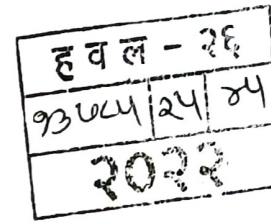 हवल - २६
१३७८५ २५ ४५
२०२२